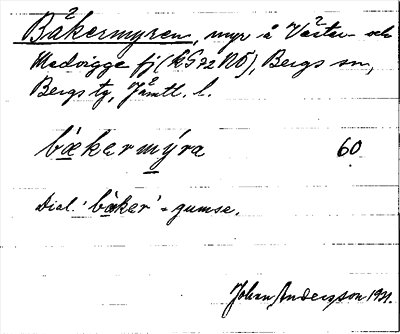 Båkermyren, myr å Väster- och
Medvigge fj (KG72NÖ), Bergs sn,
Bergs tg, Jämtl. l.
båkermy̆ra 60
Dial. 'båker' = gumse.
Johan Andersson 1931.